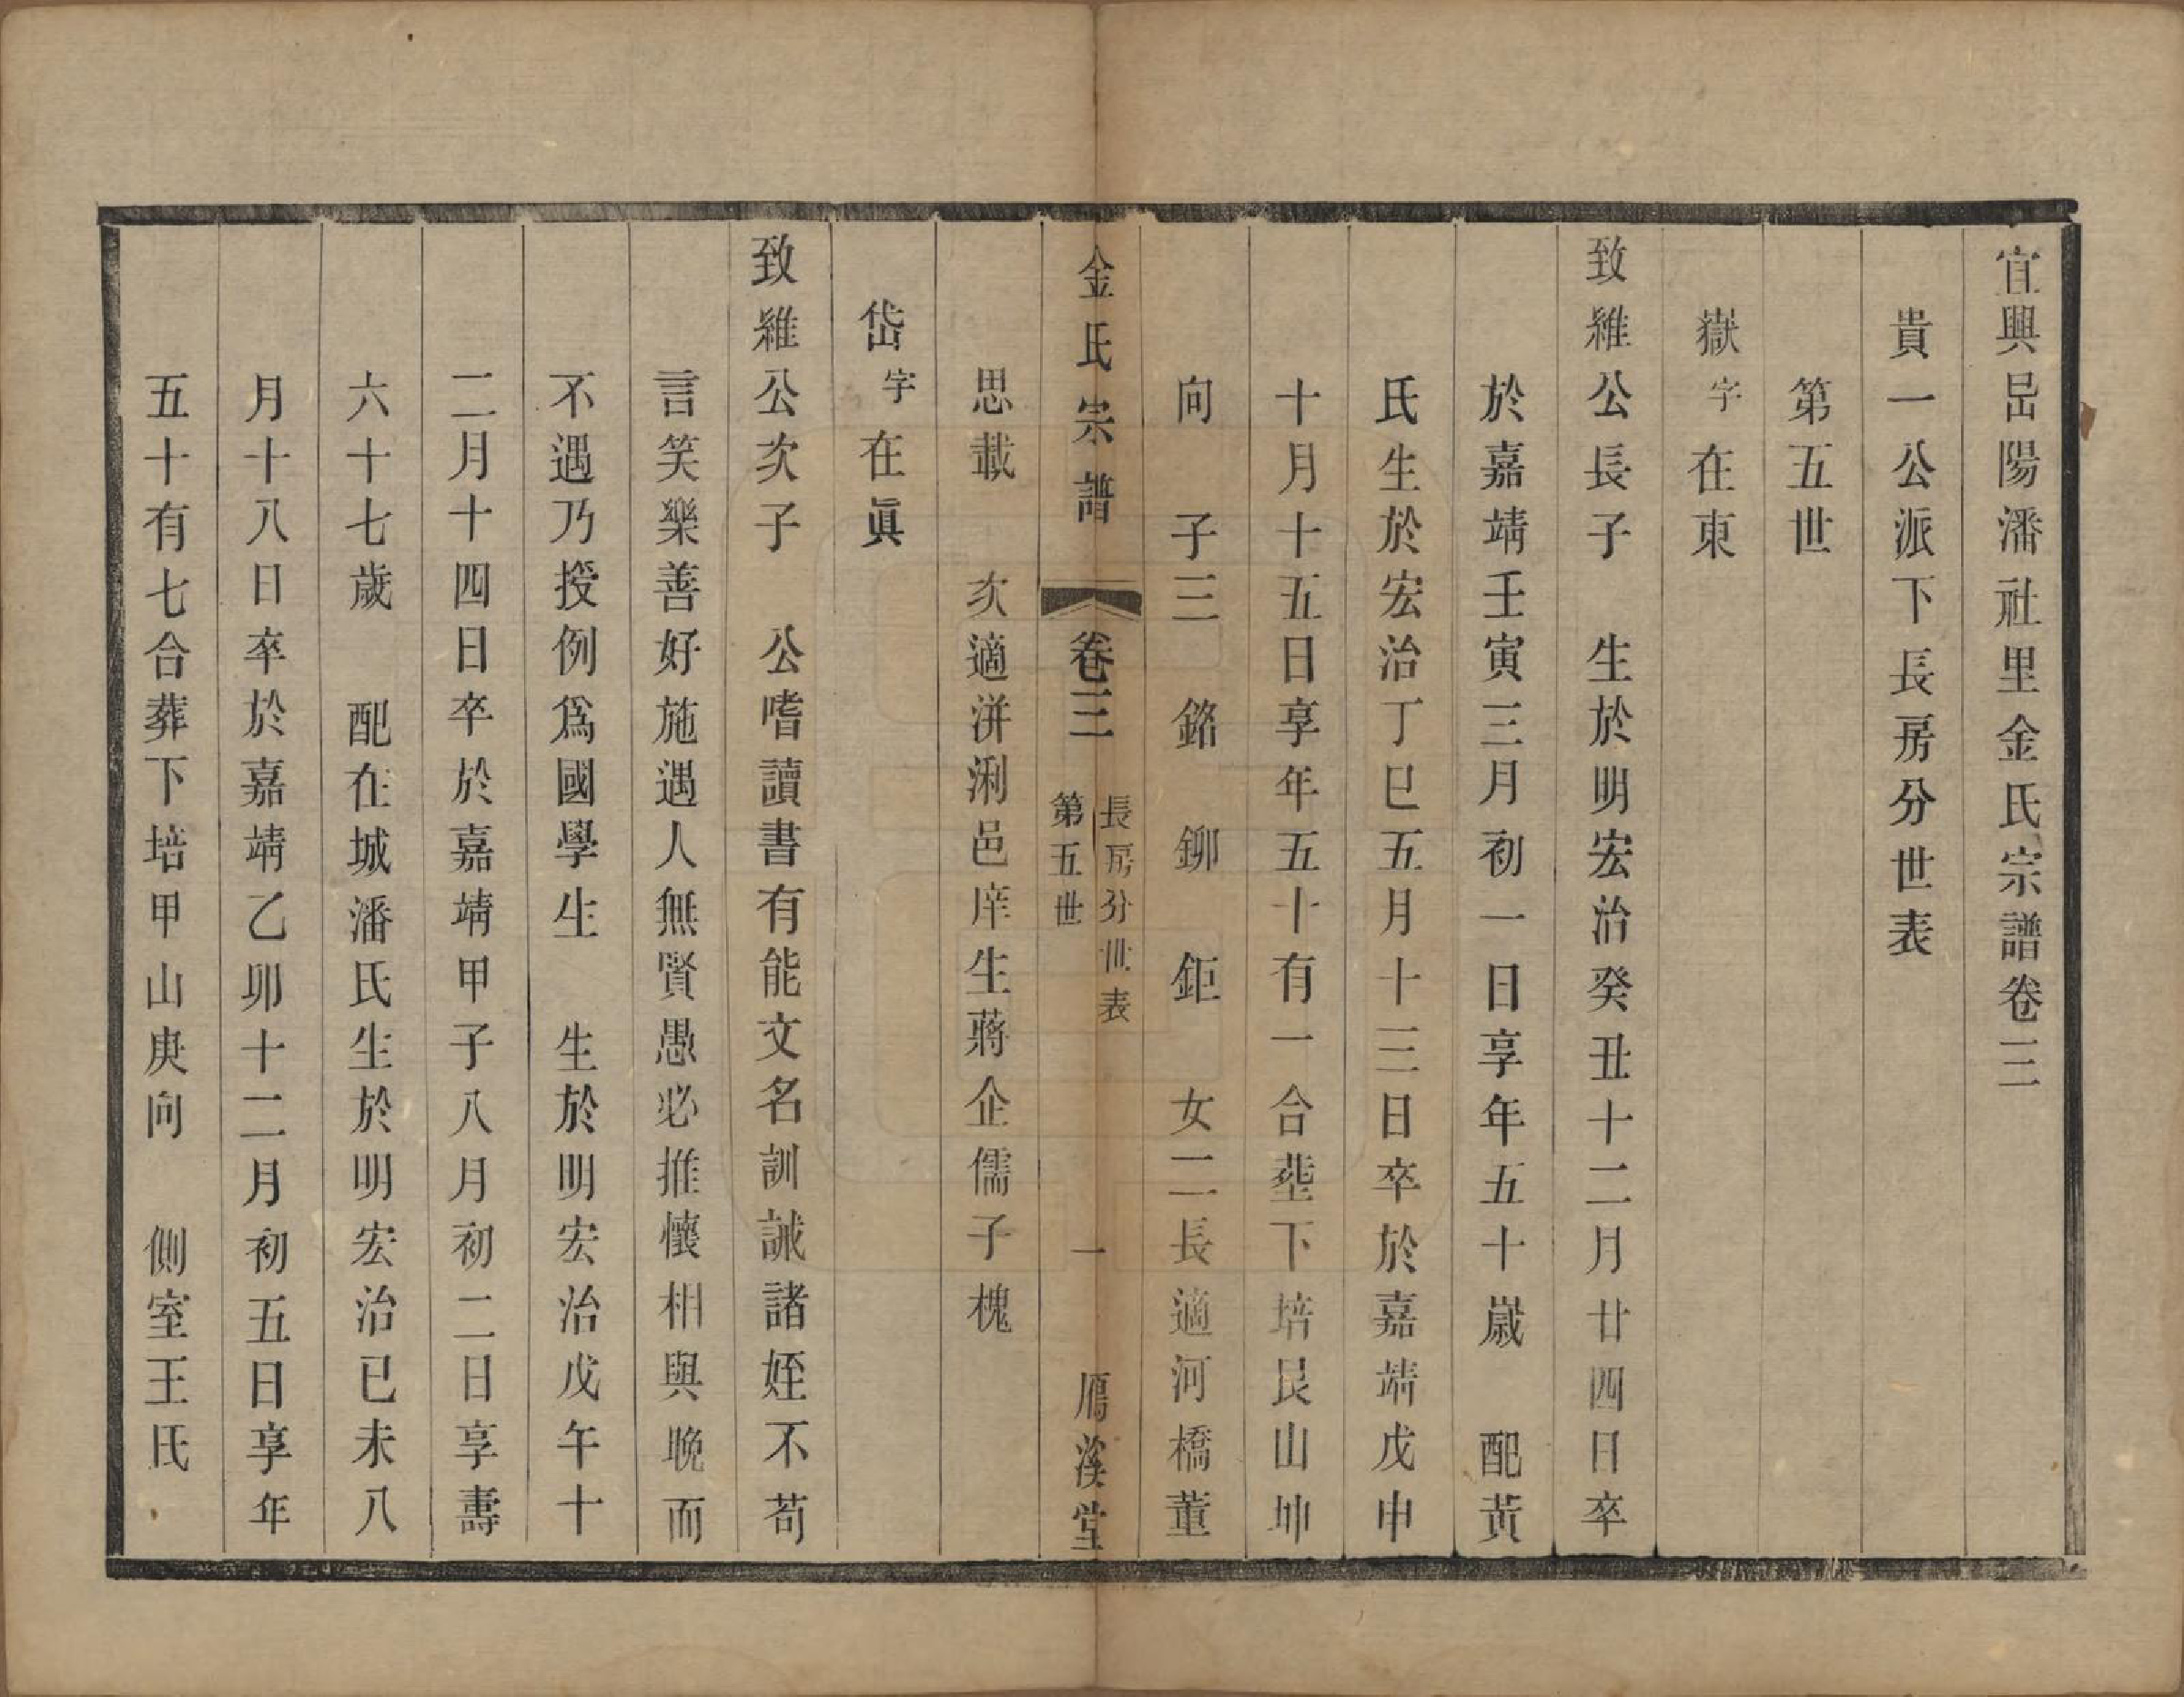 宜興岊陽潘社里金氏宗譜卷三
貴一公派下長房分世表
第五世
嶽字在東
致維公長子　生於明宏治癸丑十二月廿四日卒
於嘉靖壬寅三月初一日享年五十歲　配黃
氏生於宏治丁巳五月十三日卒於嘉靖戊申
十月十五日享年五十有一合塟下培艮山坤
向　子三　銘　鉚　鉅　女二長適河橋董
思載　次適洴浰邑庠生蔣企儒子槐
金氏宗譜　卷三　長房分世表　第五世　一　鴈溪堂
岱字在眞
致維公次子　公嗜讀書有能文名訓誡諸姪不苟
言笑樂善好施遇人無賢愚必推懷相與晚而
不遇乃授例爲國學生　生於明宏治戊午十
二月十四日卒於嘉靖甲子八月初二日享壽
六十七歲　配在城潘氏生於明宏治已未八
月十八日卒於嘉靖乙卯十二月初五日享年
五十有七合葬下培甲山庚向　側室王氏